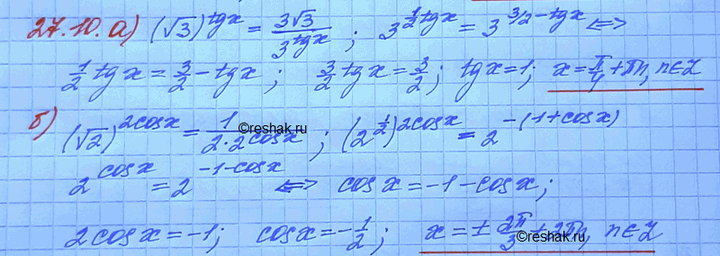 27.10. а) (√3)^tgx = 3√3/3^tgx ; 3^(1/2 tgx) = 3^(3/2 - tgx) <=>
1/2 tgx = 3/2 - tgx ; 3/2 tgx = 3/2 ; tgx = 1 ; x = π/4 + πn, n∈Z
б) (√2)^2cosx = 1/(2·2^cosx) ; (2^(1/2))^2cosx = 2^-(1+cosx)
©reshak.ru
2^cosx = 2^(-1-cosx) <=> cosx = -1 - cosx ;
2cosx = -1 ; cosx = -1/2 ; x = ± 2π/3 + 2πn, n∈Z